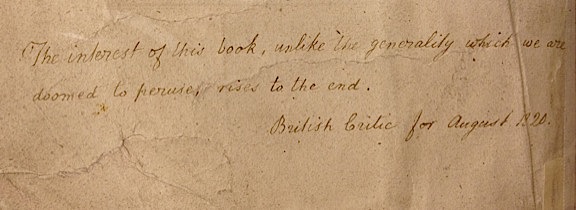 The interest of this book, unlike the generality which we are
doomed to peruse, rises to the end.
British Critic for August 1820.